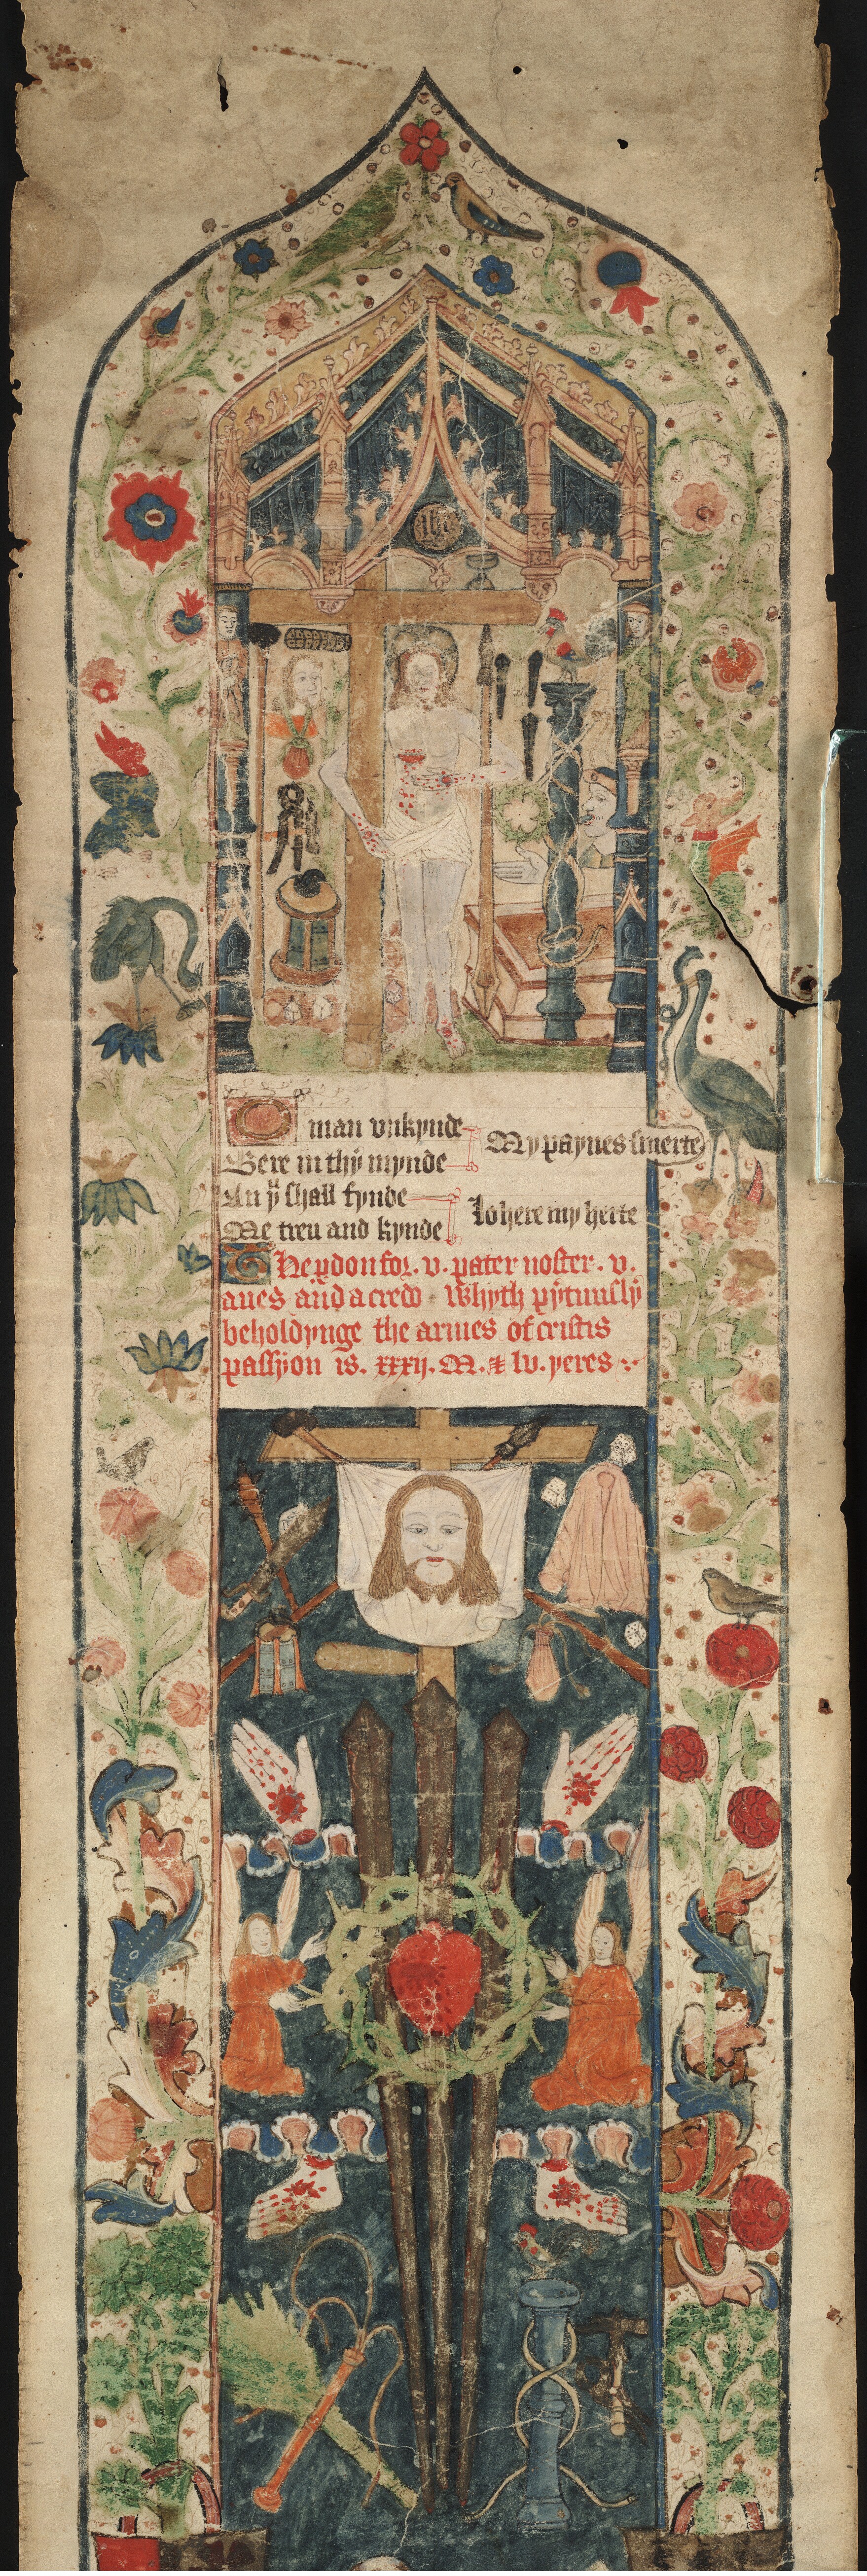 ihc
O man vnkynde
Bere in thy mynde
My paynes smerte
An yͧ shall fynde
Me treu and kynde
lo here my herte
The pdon for . v . pater noster . v .
aues and a credo Whyth pytuusly
beholdynge the armes of cristis
passyon is . xxxij . M . & lv . yeres